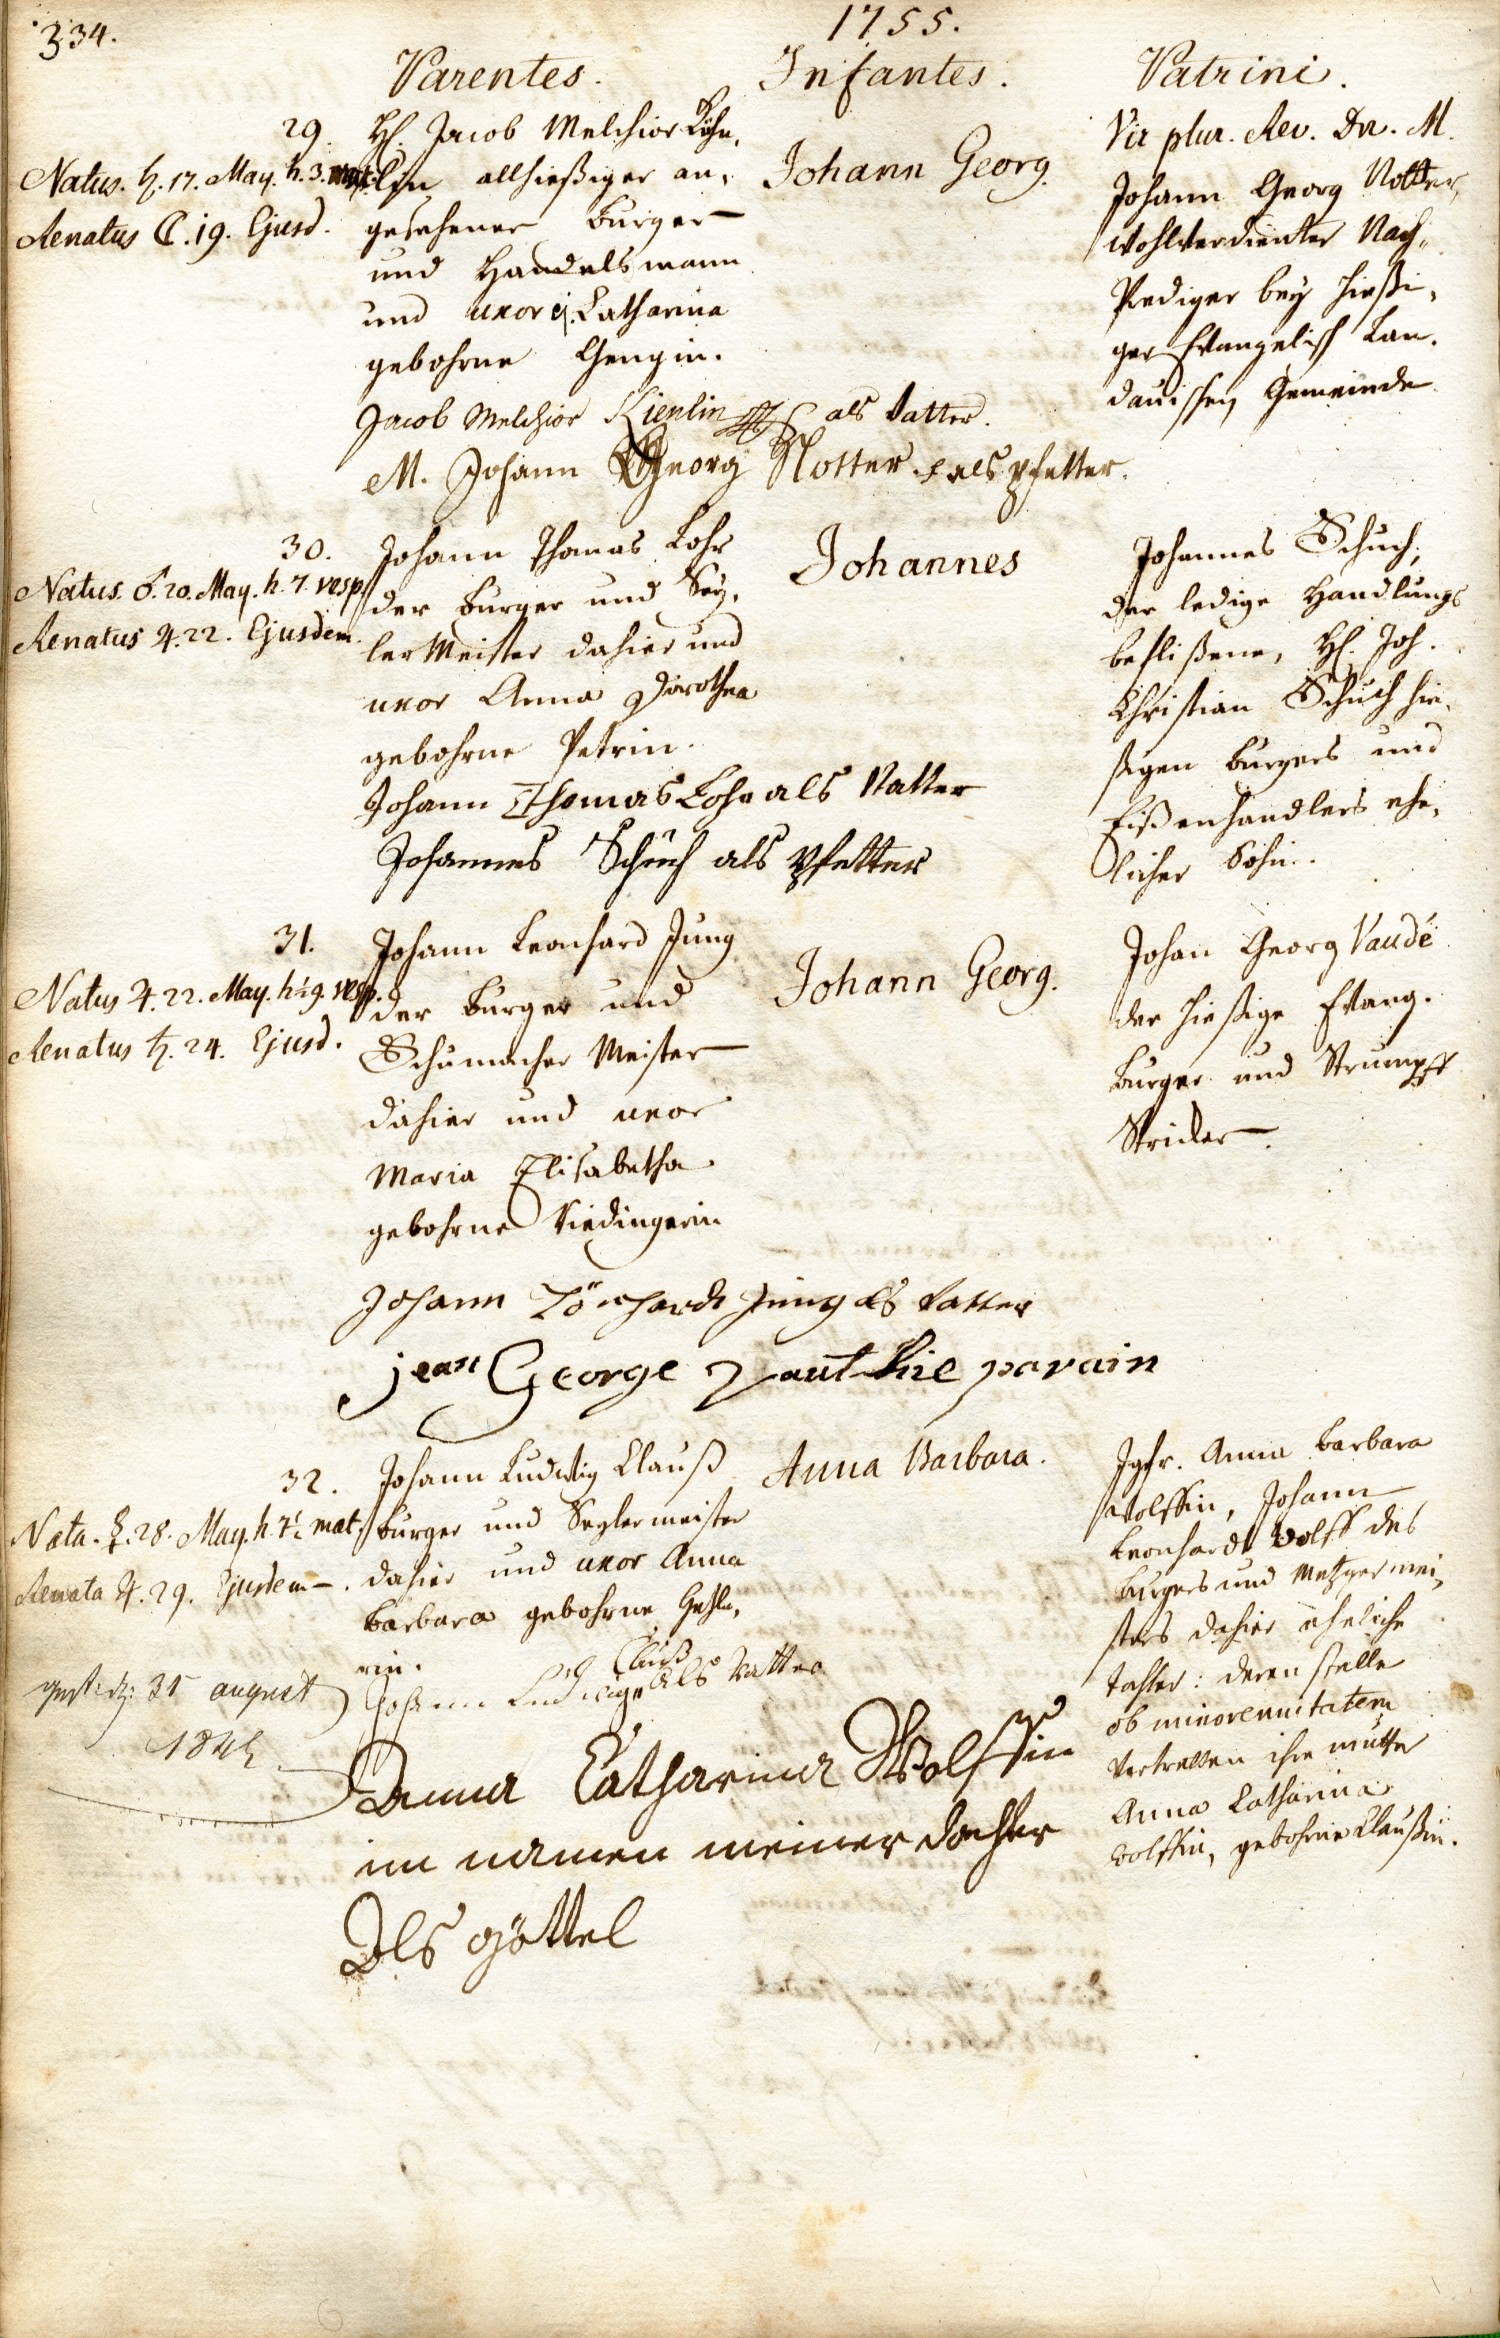 334.
1755.
Parentes. Infantes. Patrini.
29.
Natus. ♄. 17. May. h. 3. mat.
Renatus ☾. 19. Ejusd.
H. Jacob Melchior Kühn,
lin allhießiger an,
gesehener burger
und Handelsmann
und uxor ej. Catharina
gebohrne Gengin.
Johann Georg.
Vir plur. Rev. Dn. M.
Johann Georg Notter,
wohlverdienter Nach,,
Prediger bey hießi,
ger Evangelisch Lan,
dauischen Gemeinde
Jacob Melchior Kienlin als Vatter.
M. Johann Georg Notter als Pfetter.
30.
Natus. ♂. 20. May. h. 7. vesp.
Renatus ♃. 22. Ejusdem.
Johann Thomas Lohr
der burger und Sey,
ler Meister dahier und
uxor Anna Dorothea
gebohrne Petrin.
Johannes
Johannes Schuch,
der ledige Handlungs
beflißene, H. Joh.
Christian Schuch hie,
sigen burgers und
Eißenhandlers ehe,
licher Sohn.
Johann Thomas Lohr als Vatter
Johannes Schuch als Pfetter
31.
Natus ♃. 22. May. h. ½9. vesp.
Renatus ♄. 24. Ejusd.
Johann Leonhard Jung
der burger und
Schumacher Meister
dahier und uxor
Maria Elisabetha
gebohrne Viedingerin
Johann Georg.
Johan Georg Vaudé
der hießige Evang.
burger und Strumpff
Stricker.
Johann Lönhardt Jung als Vatter
jean George Vauthie parain
32.
Nata. ☿. 28. May. h. 7½ mat.
Renata ♃. 29. Ejusdem.
Johann Ludwig Clauß
burger und Seylermeister
dahier und uxor Anna
Barbara gebohrne Gehle,
rin.
Anna Barbara.
Jgfr. Anna Barbara
Wolffin, Johann
Leonhardt Wolff des
burgers und Metzgermei,
sters dahier eheliche
Tochter: deren stelle
ob minorennitatem
Vertretten ihre mutter
Anna Catharina
Wolffin, gebohrne Claußin.
Johann Ludwig Clauß als Vatter
31 august
Anna Catharina Wolffin
im namen meiner dochter
Als göttel